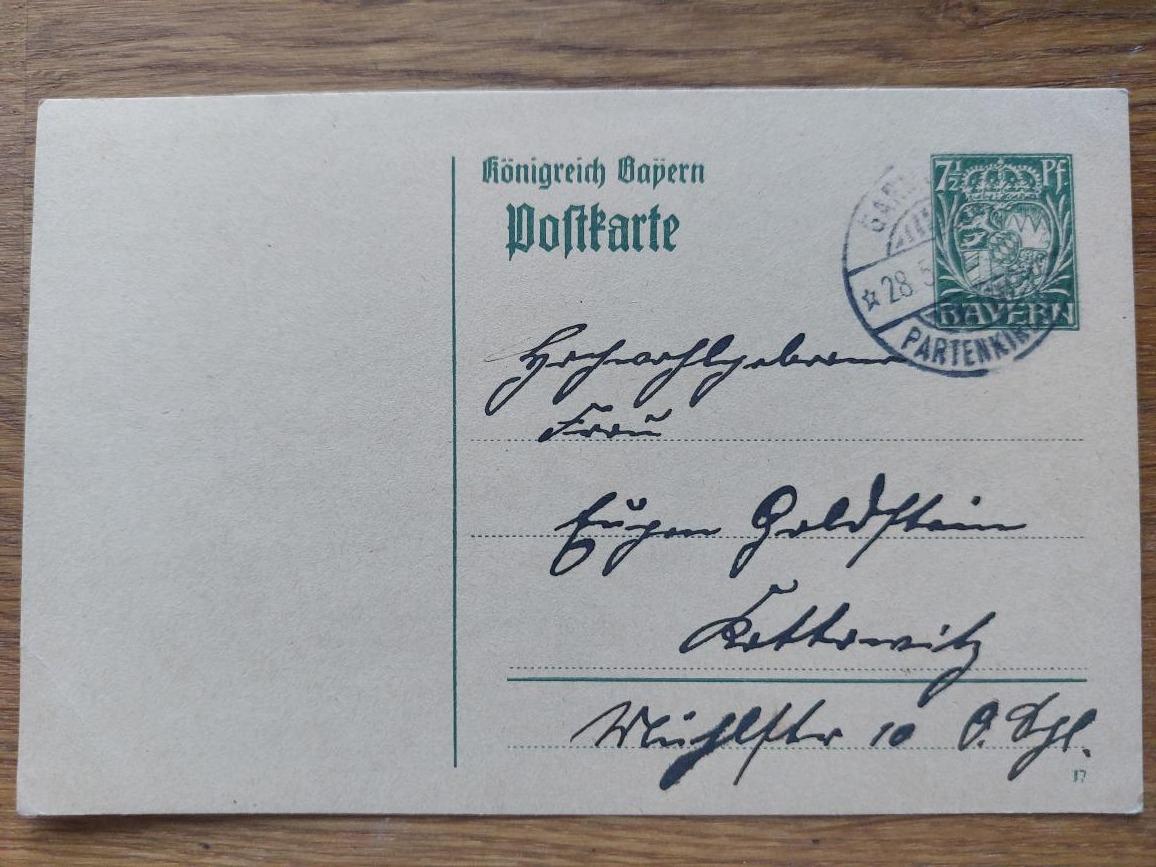 Königreich Bayern
Postkarte
7½ Pf
BAYERN
28 5
PARTENKIR
Hochwohlgeboren
Frau
Eugen Goldstein
Kattowitz
Mühlstr 10 O. Schl.
17